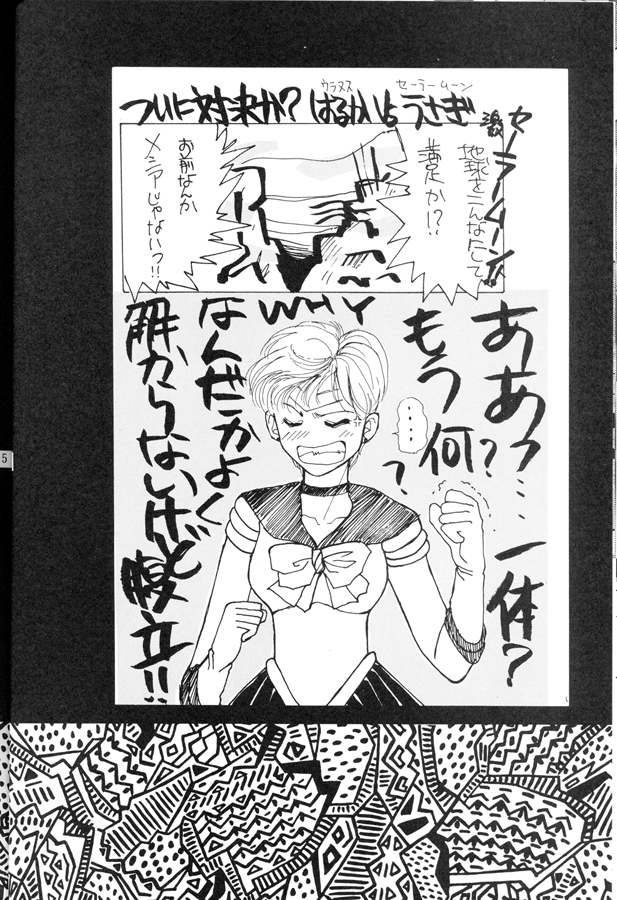 ウラヌス
セーラームーン
ついに対決か? はるか VS うさぎ
激
セーラームーン!!
地球をこんなにして
満足か!?
お前なんか
メシアじゃないっ!!
ああっ…
一体?
もう何?
?
WHY
なんだかよく
解からないけど
腹立!!
5